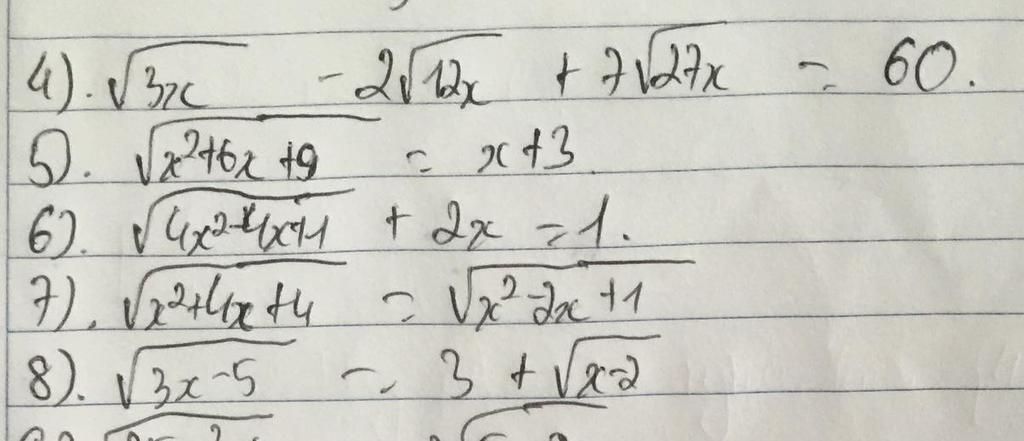 4). √3x - 2√12x + 7√27x = 60.
5). √x²+6x+9 = x+3
6). √4x²-4x+1 + 2x = 1.
7). √x²+4x+4 = √x²-2x+1
8). √3x-5 = 3 + √x-2